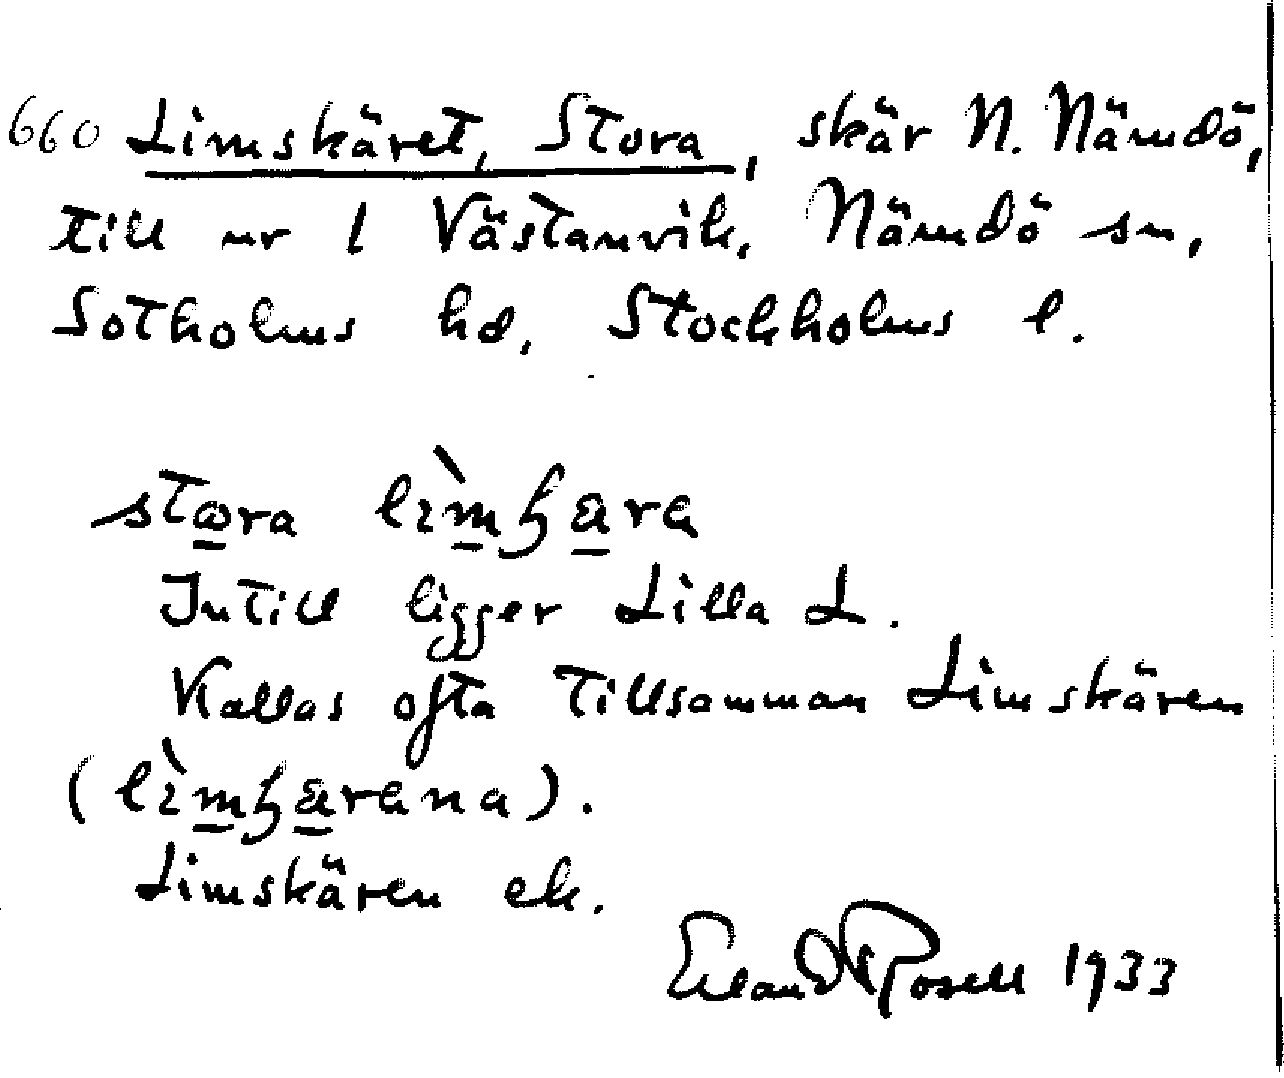 660 Limskäret, Stora, skär N. Nämdö,
till nr 1 Västanvik, Nämdö sn,
Sotholms hd, Stockholms l.
stɷra lìmʃæra
Intill ligger Lilla L.
Kallas ofta tillsamman Limskären
(lìmʃærəna).
Limskären ek.
Erland Rosell 1933